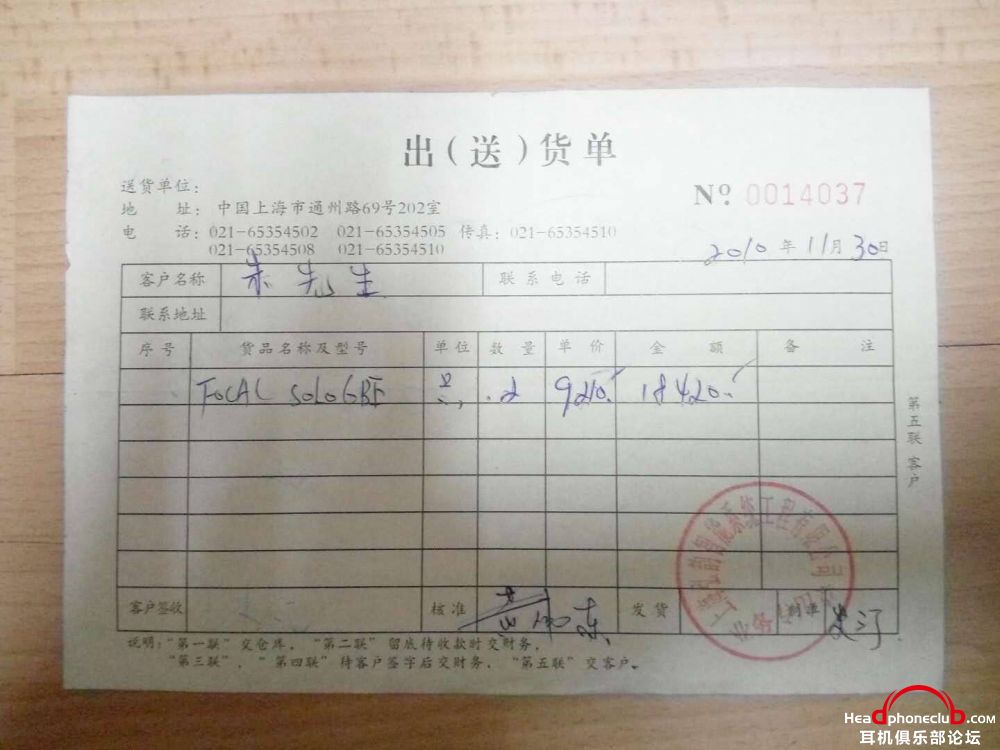 出(送)货单
送货单位:
№ 0014037
地 址: 中国上海市通州路69号202室
电 话: 021-65354502 021-65354505 传真: 021-65354510
021-65354508 021-65354510
2010年11月30日
客户名称 朱先生 联系电话
联系地址
序号 货品名称及型号 单位 数量 单价 金额 备注
FOCAL SOLO6BE 只 2 9210. 18420.
第五联 客户
客户签收 核准 发货 制单
说明:"第一联"交仓库, "第二联"留底待收款时交财务,
"第三联", "第四联"待客户签字后交财务, "第五联"交客户。
系统工程有限公司
Headphoneclub.com
耳机俱乐部论坛